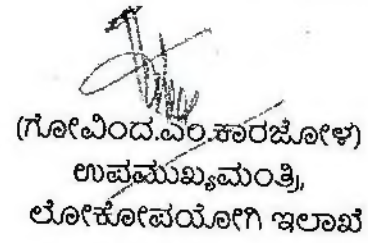 (ಗೋವಿಂದ.ಎಂ.ಕಾರಜೋಳ)
ಉಪಮುಖ್ಯಮಂತ್ರಿ,
ಲೋಕೋಪಯೋಗಿ ಇಲಾಖೆ